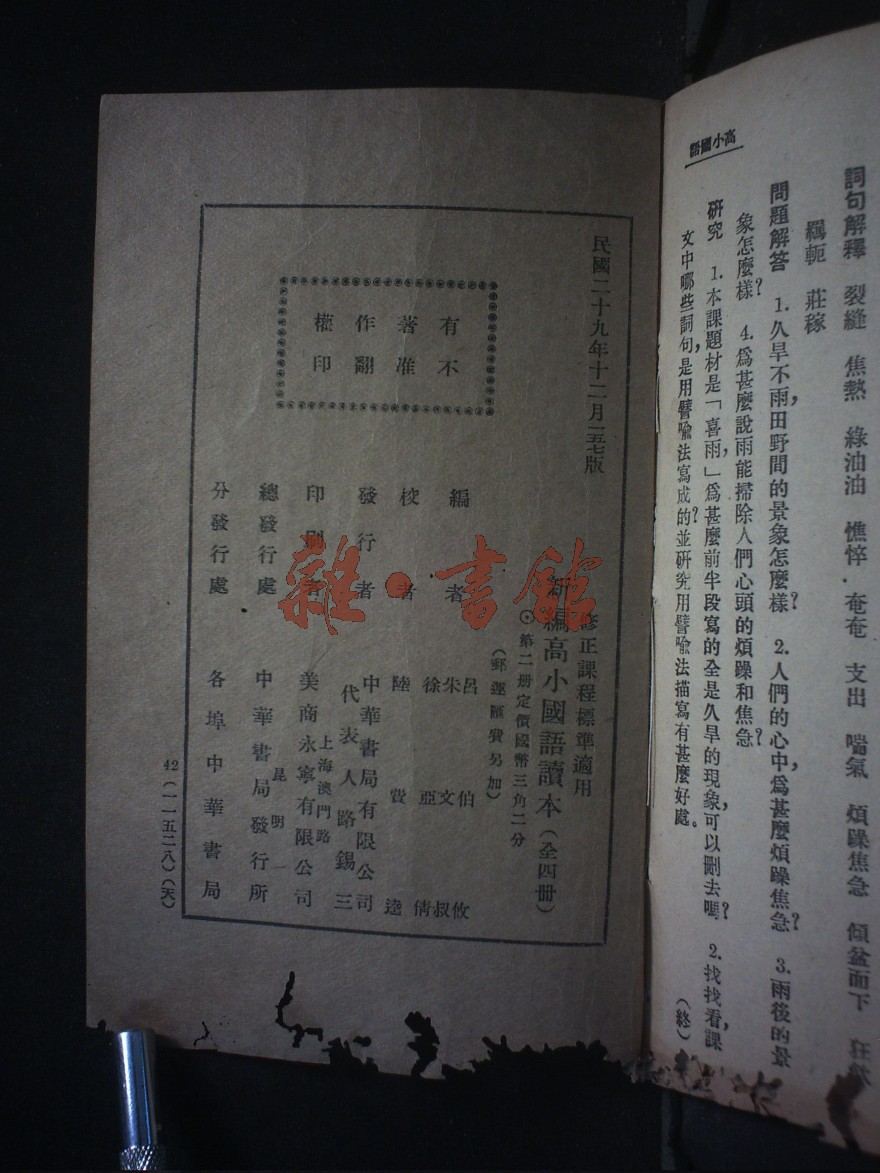 高小國語
詞句解釋 裂縫 焦熱 綠油油 憔悴 奄奄 支出 喘氣 煩躁焦急 傾盆而下
羈軛 莊稼
問題解答 1.久旱不雨,田野間的景象怎麼樣? 2.人們的心中爲甚麼煩躁焦急? 3.雨後的景
象怎麼樣? 4.爲甚麼說雨能掃除人們心頭的煩躁和焦急?
研究 1.本課題材是「喜雨」爲甚麼前半段寫的全是久旱的現象,可以刪去嗎? 2.找找看,課
文中哪些詞句,是用譬喻法寫成的?並研究用譬喻法描寫有甚麼好處。
(終)
民國二十九年十二月一五七版
有著作權
不准翻印
修正課程標準適用
新編高小國語讀本(全四冊)
第二冊定價國幣三角二分
(郵運匯費另加)
編者 呂伯攸 朱文叔 徐亞倩
校者 陸費逵
發行者 中華書局有限公司
代表人路錫三
印刷者 上海澳門路
美商永寧有限公司
總發行處 昆明
中華書局發行所
分發行處 各埠中華書局
42(一一五二八)(天)
雜·書館